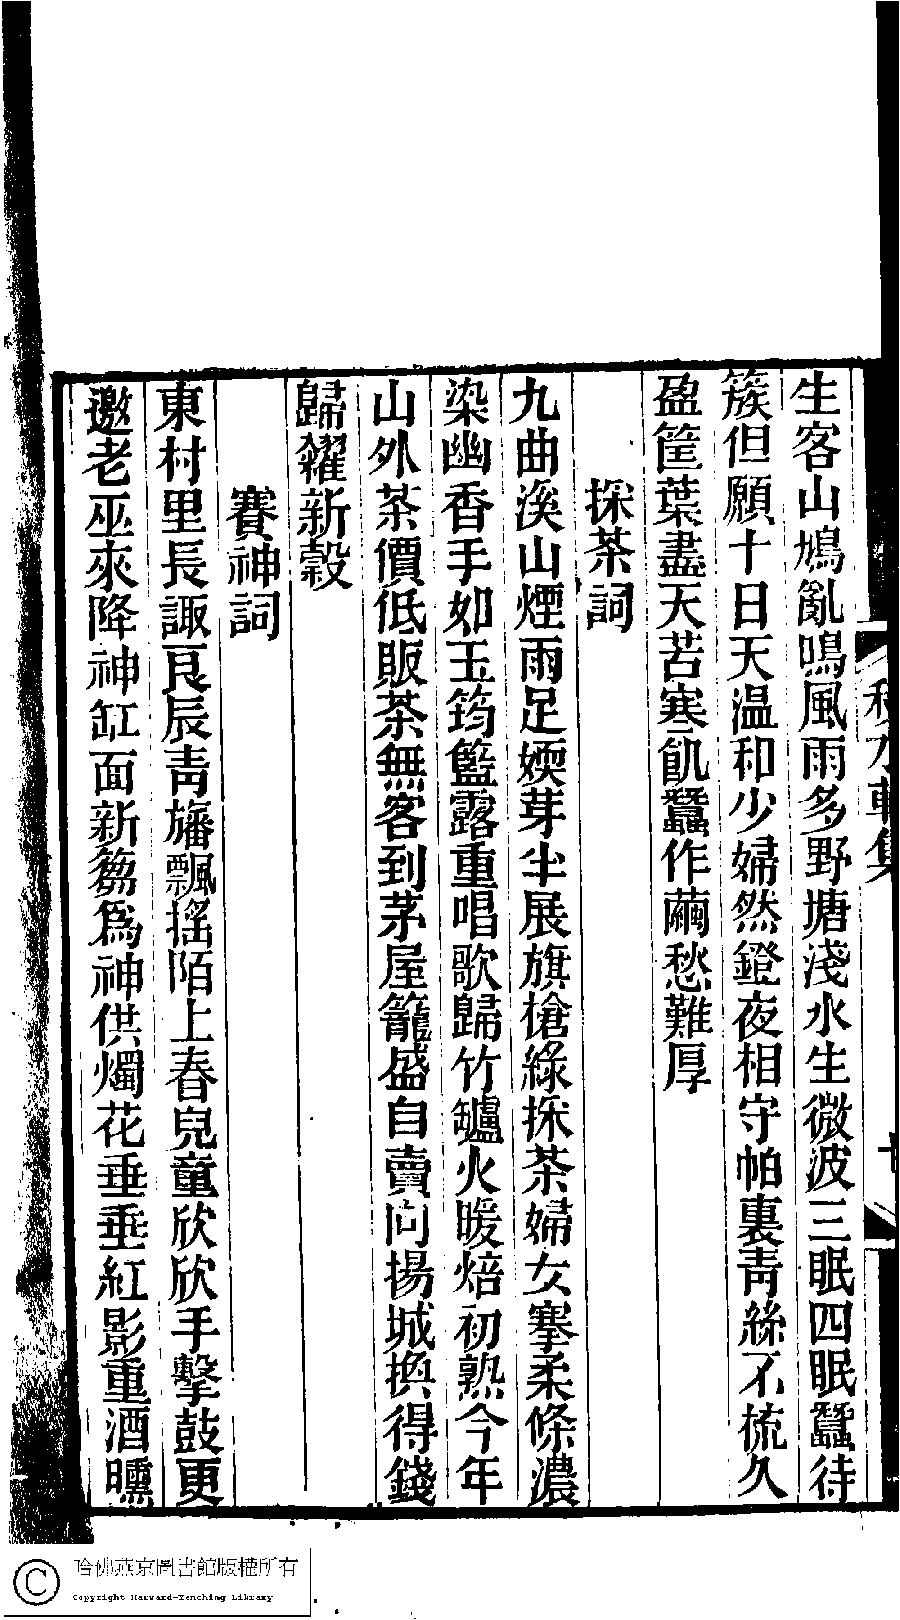 生客山鳩亂鳴風雨多野塘淺水生微波三眠四眠蠶待
簇但願十日天温和少婦然鐙夜相守帕裏青絲不梳久
盈筐葉盡天苦寒飢蠶作繭愁難厚
採茶詞
九曲溪山煙雨足媆芽半展旗槍綠採茶婦女搴柔條濃
染幽香手如玉筠籃露重唱歌歸竹罏火暖焙初熟今年
山外茶價低販茶無客到茅屋籠盛自賣向揚城換得錢
歸糴新穀
賽神詞
東村里長諏良辰青旛飄搖陌上春兒童欣欣手擊鼓更
邀老巫來降神缸面新篘爲神供燭花垂垂紅影重酒醺
秋水軒集
哈佛燕京圖書館版權所有
Copyright Harvard-Yenching Library